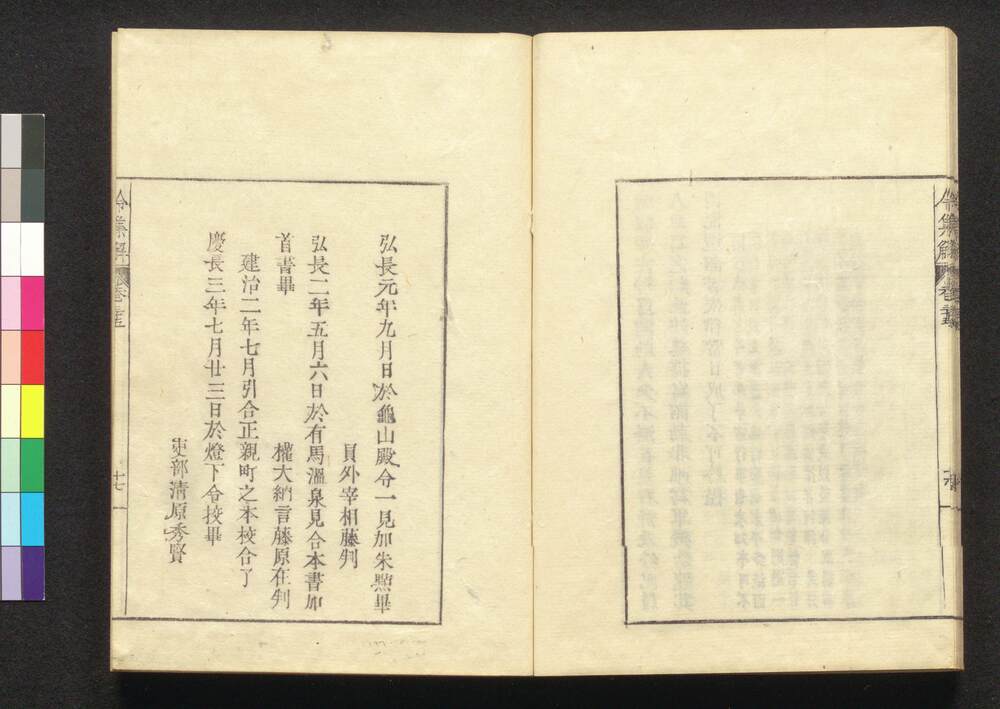 令集解 卷
弘長元年九月日於龜山殿令一見加朱點畢
員外宰相藤判
弘長二年五月六日於有馬溫泉見合本書加
首書畢
權大納言藤原在判
建治二年七月引合正親町之本校合了
慶長三年七月廿三日於燈下令校畢
吏部清原秀賢
令集解 卷